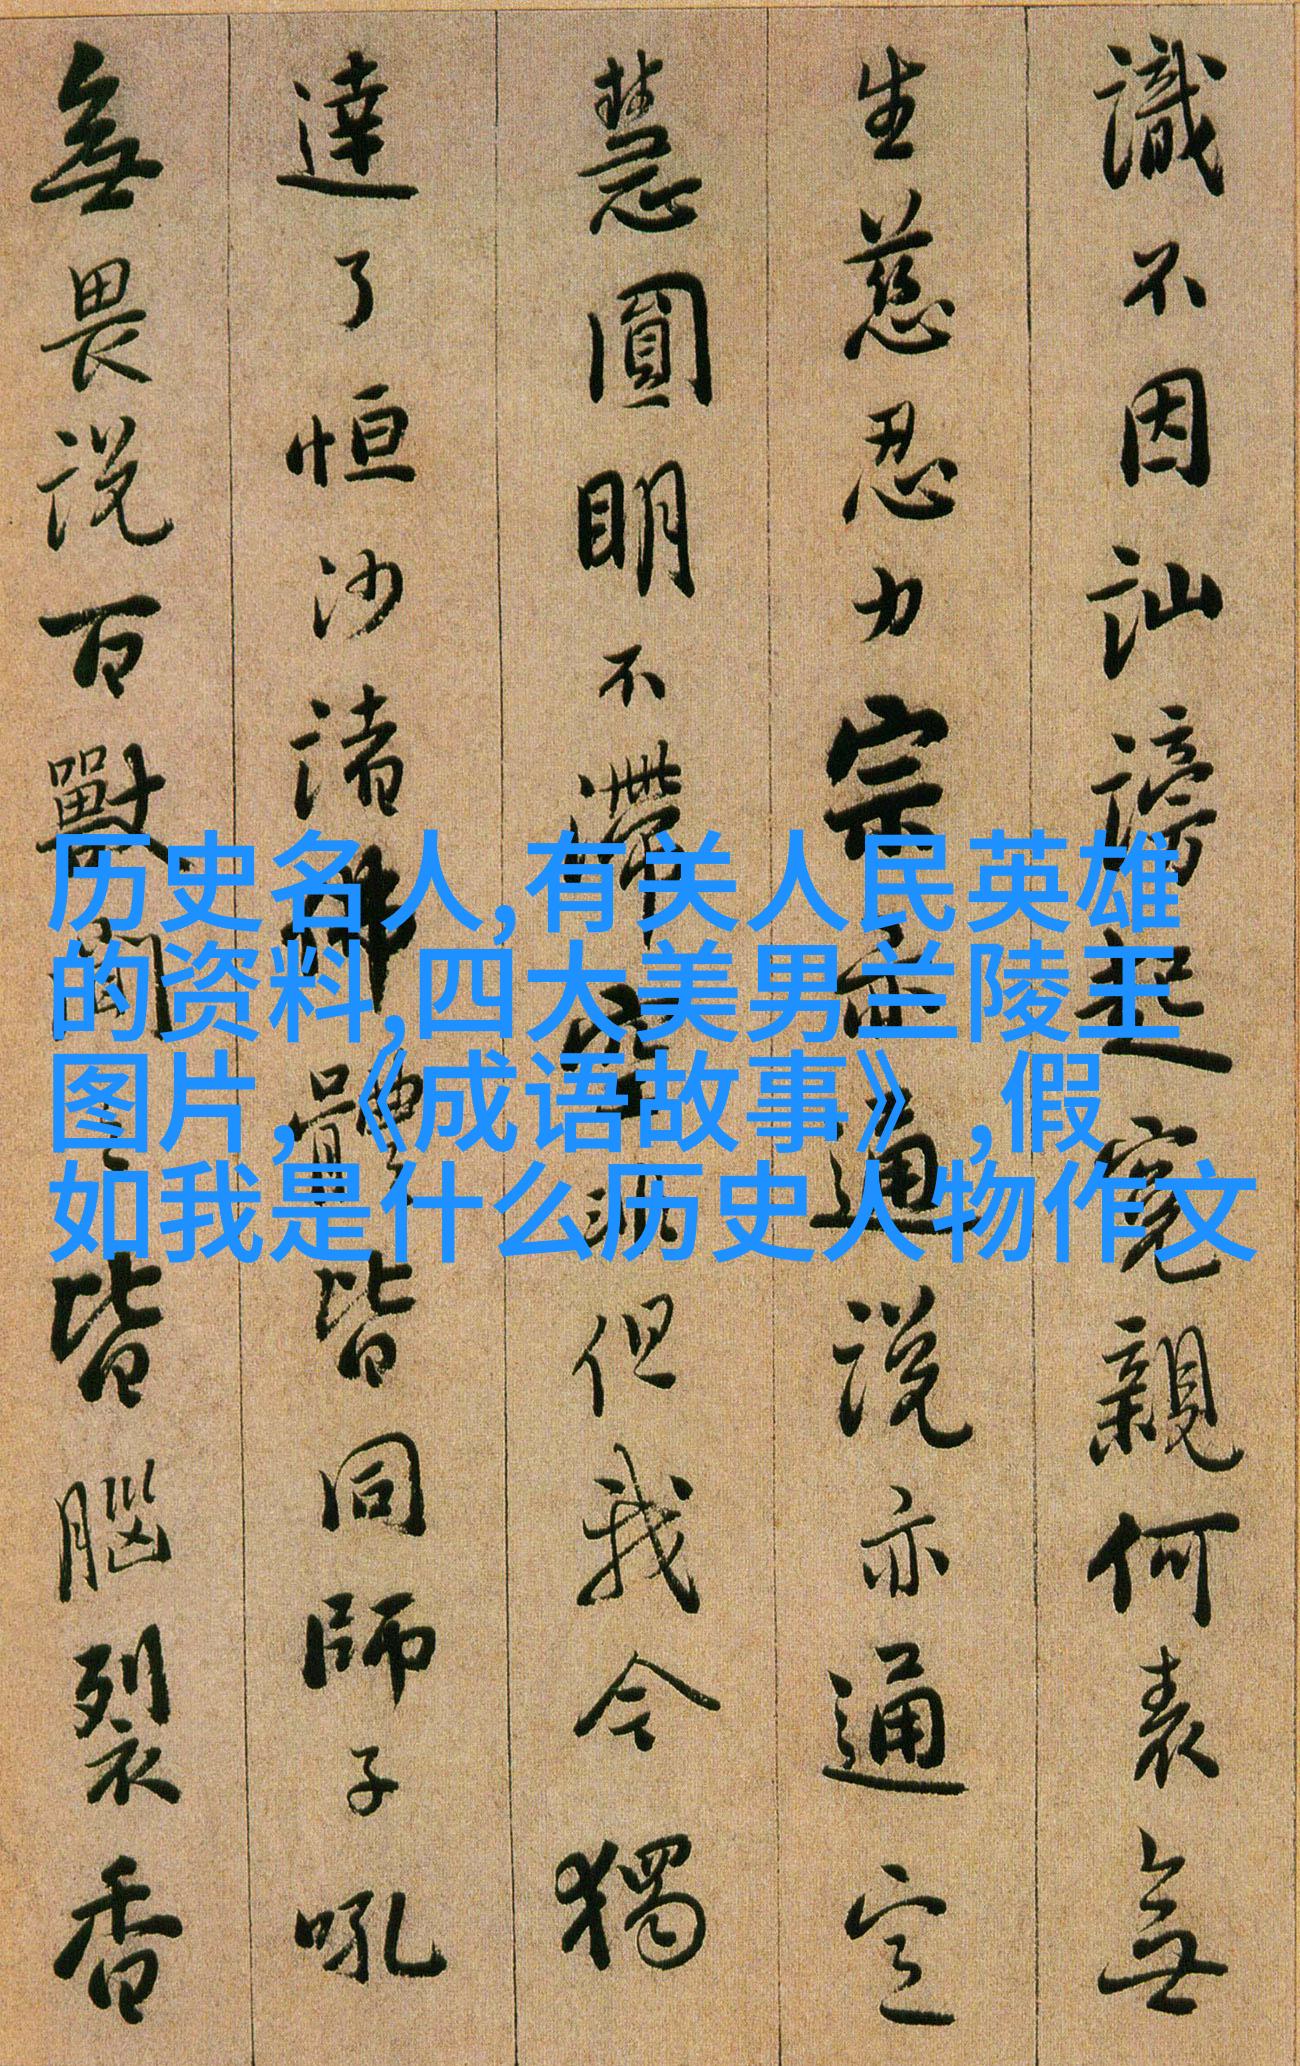 識不因訕謗起寃親何表無
生慈忍力宗亦通説亦通定
慧圓明不滯空非但我今獨
達了恒沙諸佛體皆同師子吼
無畏説百獸聞之皆腦裂香
历史名人,有关人民英雄
的资料,四大美男兰陵王
图片,《成语故事》,假
如我是什么历史人物作文